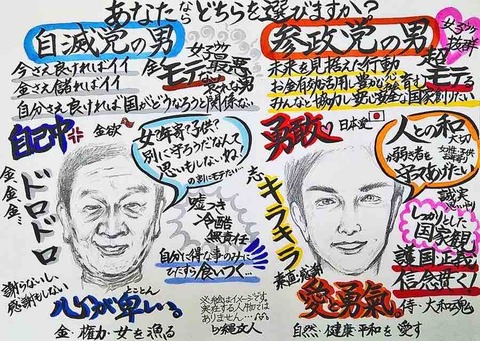 あなたならどちらを選びますか?
自滅党の男
女ウケ最悪
今さえ良ければイイ
金さえ儲ればイイ
自分さえ良ければ国がどうなろうと関係ない
金
モテない
哀れな男
自己中
金欲
女?年寄?子供?
別に守ろうだなんて
思いもしないね!
の割にモテたい…
金金金…
ドロドロ
嘘つき
冷酷
無責任
自分に得な事のみに
ひたすら食いつく…
謝らないし、
感謝もしない
とことん
心が卑しい。
金・権力・女を漁る
※絵はイメージです。
実在する人物では
ありません…
by縄文人
参政党の男
女ウケ抜群
未来を見据えた行動
超モテる
みんなと協力し安心安全な国家創りたい
勇敢
日本愛
人との和
大切
か弱き者を
守ってあげたい
志
キラキラ
誠実
しっかりとした
国家観
護国正義
信念貫く!
愛と勇氣。
侍・大和魂
自然・健康・平和を愛す